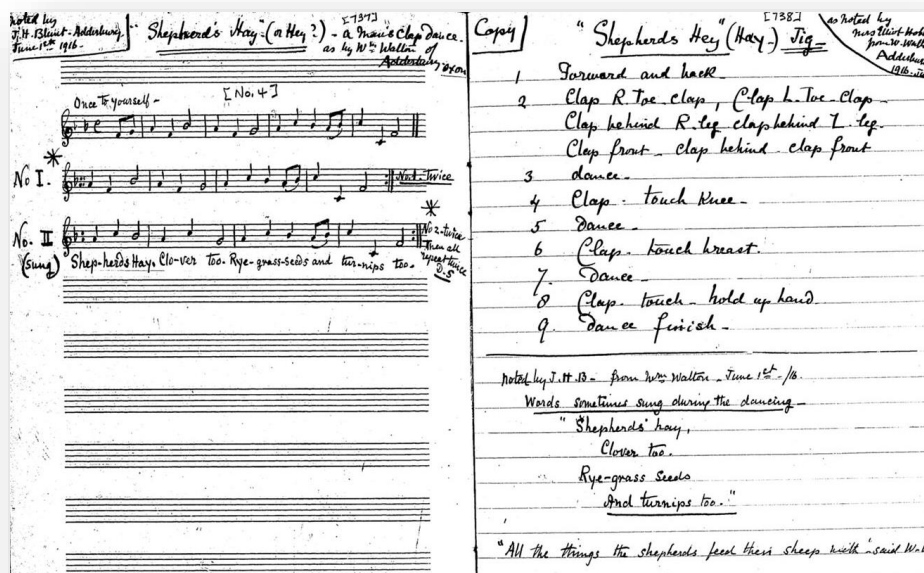 noted by
J.H. Blunt - Adderbury
June 1st 1916-
[737]
"Shepherd's Hay" (or Hey?) - a Man's Clap Dance.
as by Wm Walton of
Adderbury Oxon
Once to yourself -
[No. 4]
No I.
No. 1 - twice
No. II
(sung)
Shep-herds Hay. Clo-ver too. Rye-grass-seeds and tur-nips too.
No 2. twice
Then all
repeat twice
D.S
Copy
[738]
"Shepherds Hey" (Hay.) Jig
as noted by
from W. Walt
Adderbu
1916.
1 Forward and back
2 Clap R. Toe clap, Clap L. Toe - Clap -
Clap behind R. leg clap behind L. leg.
Clap front - clap behind - clap front
3 dance -
4 Clap - touch Knee -
5 Dance -
6 Clap. touch breast.
7. Dance -
8 Clap - touch - hold up hand.
9. Dance finish -
Noted by J.H.B - from Wm Walton - June 1st -/16.
Words sometimes sung during the dancing -
"Shepherds' hay,
Clover too.
Rye-grass Seeds
And turnips too."
"All the things the shepherds feed their sheep with" - said W.